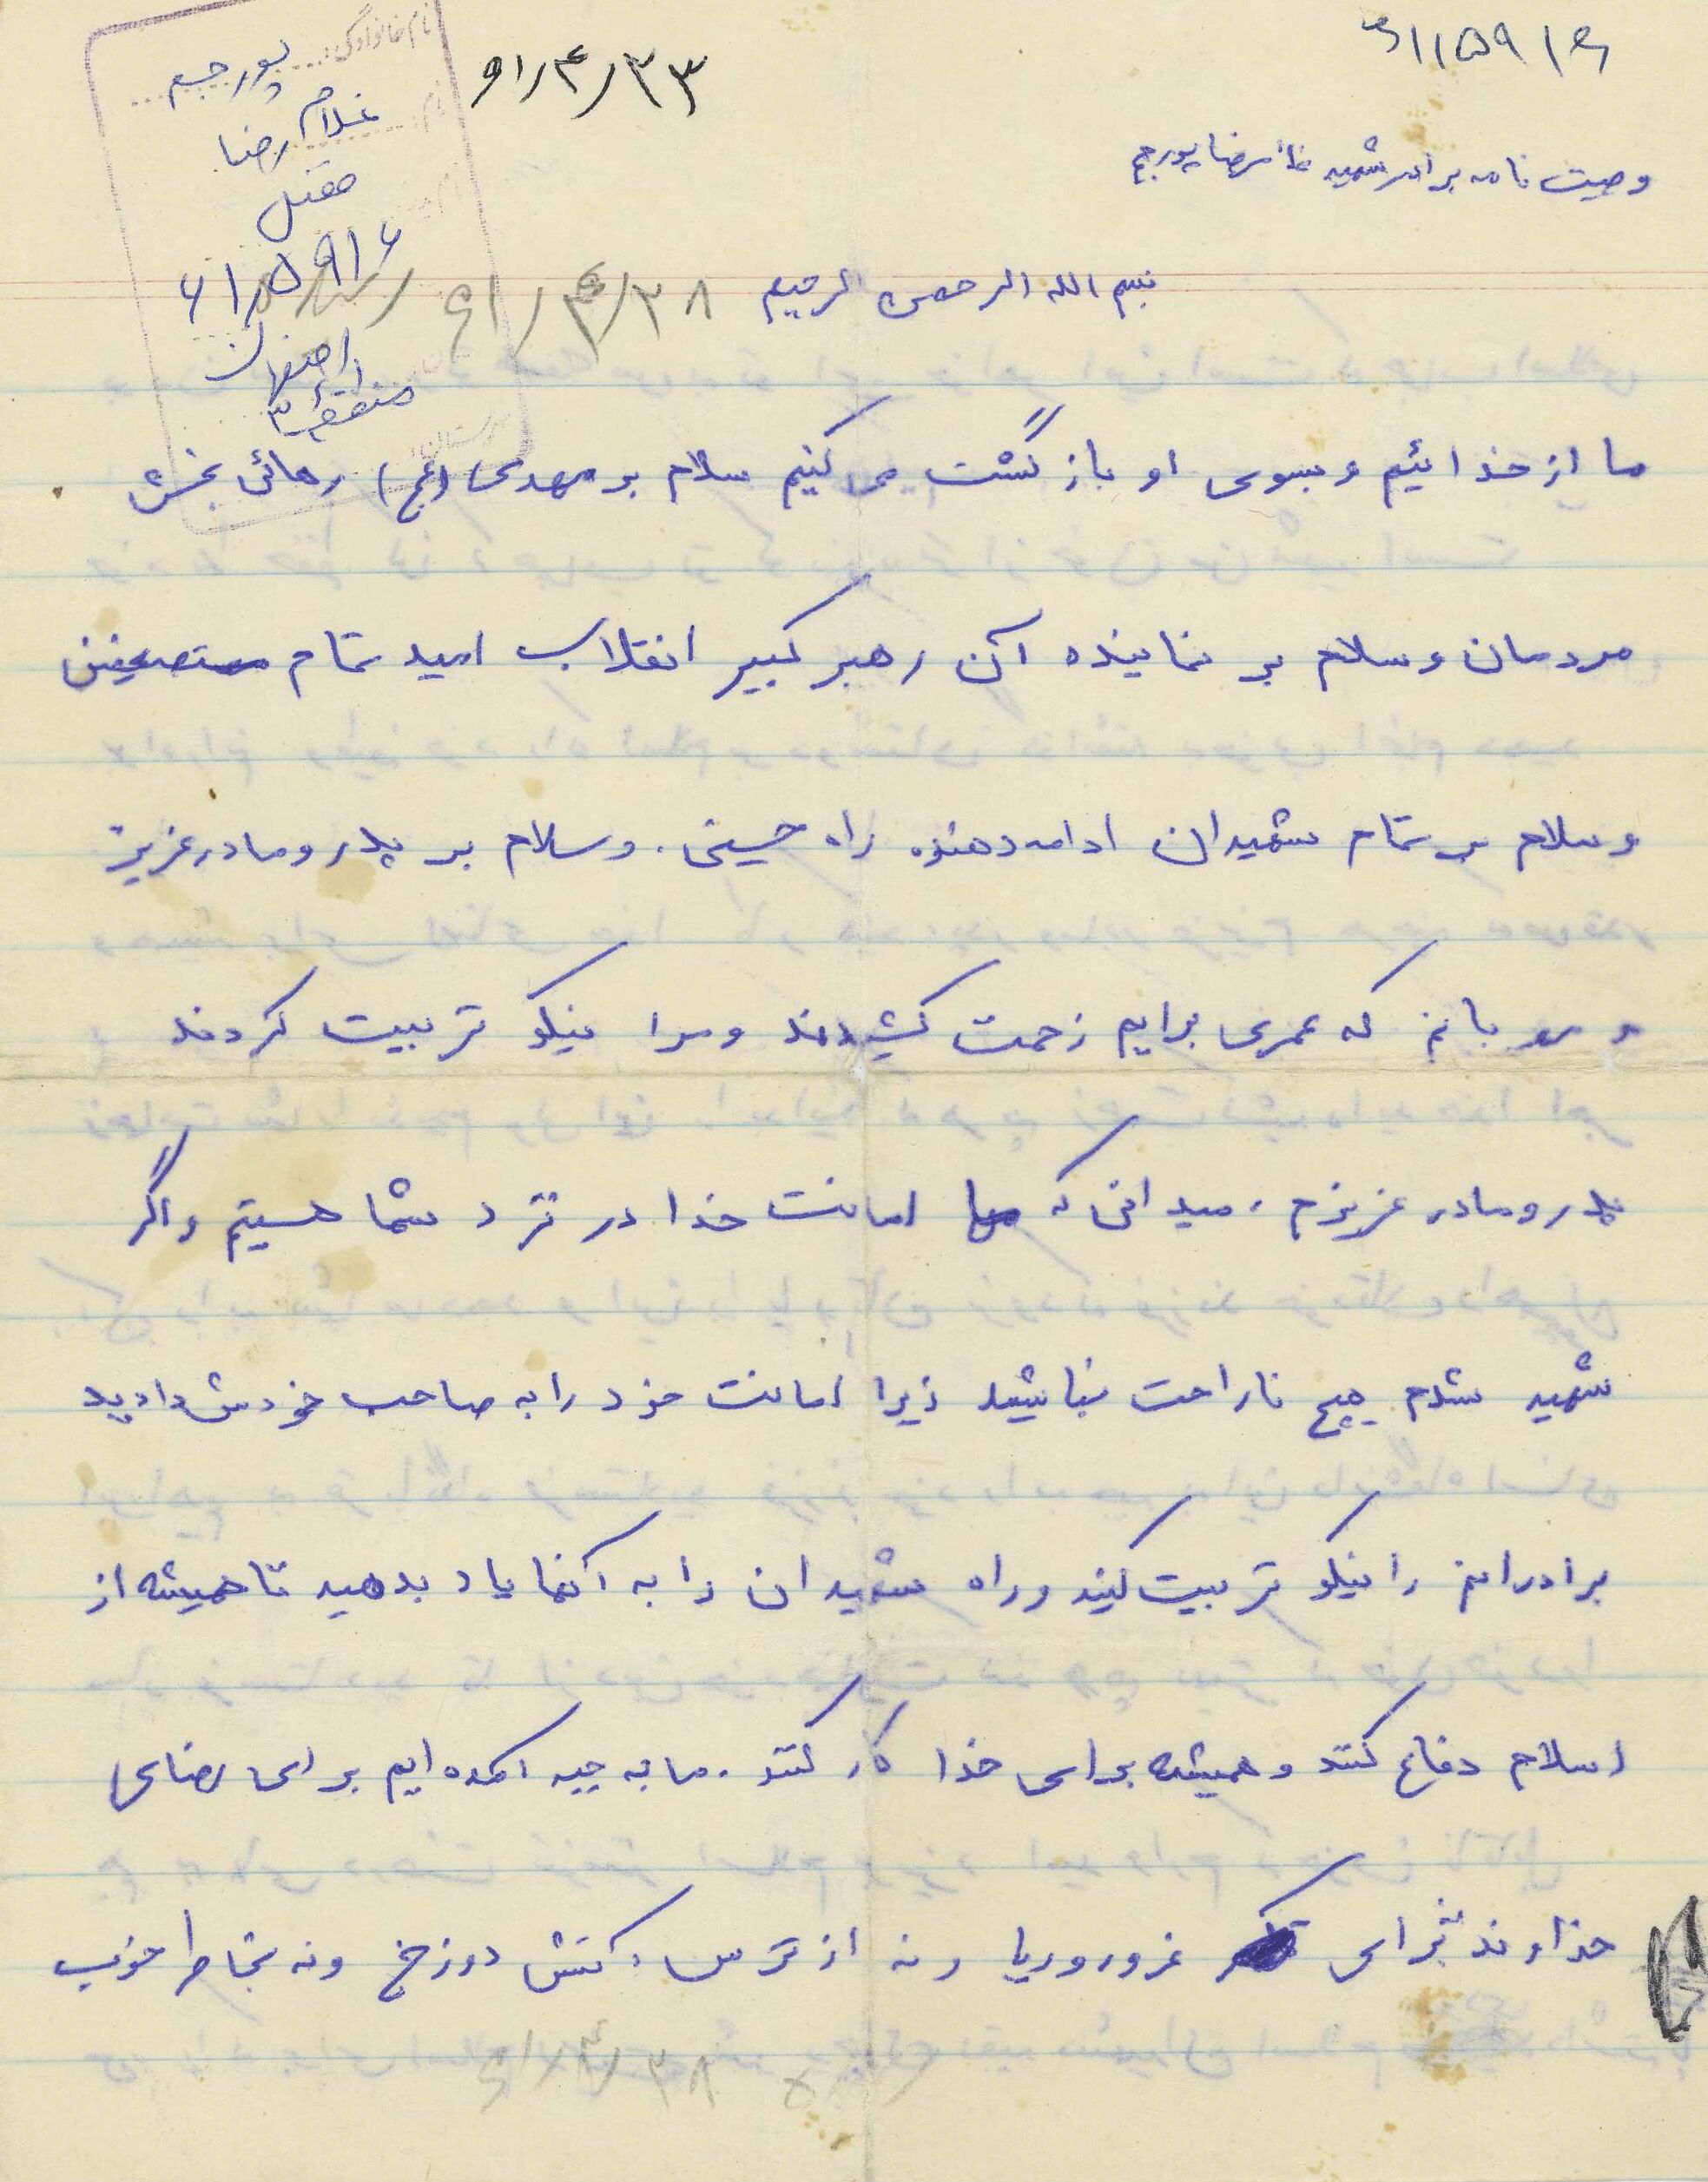 ۶۱۱۵۹۱۶
۹۱/۴/۲۳
نام خانوادگی: پورجم
غلام رضا
مقتل
۶۱۱۵۹۱۶
اصفهان
منطقه ۳
وصیت نامه برادر شهید غلامرضا پورجم
بسم الله الرحمن الرحیم
۶۱/۴/۲۸
ما از خدائیم و بسوی او بازگشت می کنیم سلام بر مهدی (عج) رهائی بخش
مردمان و سلام بر نماینده آن رهبر کبیر انقلاب امید تمام مستضعفین
و سلام بر تمام شهیدان ادامه دهنده راه حسینی. و سلام بر پدر و مادر عزیز
و مهربانم که عمری برایم زحمت کشیدند و مرا نیکو تربیت کردند
پدر و مادر عزیزم، میدانی که ما امانت خدا در نزد شما هستیم و اگر
شهید شدم هیچ ناراحت نباشید زیرا امانت خود را به صاحب خودش دادید
برادرانم را نیکو تربیت کنید و راه شهیدان را به آنها یاد بدهید تا همیشه از
اسلام دفاع کنند و همیشه برای خدا کار کنند. ما به جبهه آمده ایم برای رضای
خداوند نه برای غرور و ریا و نه از ترس آتش دوزخ و نه بخاطر خوب
۶۱/۴/۲۸